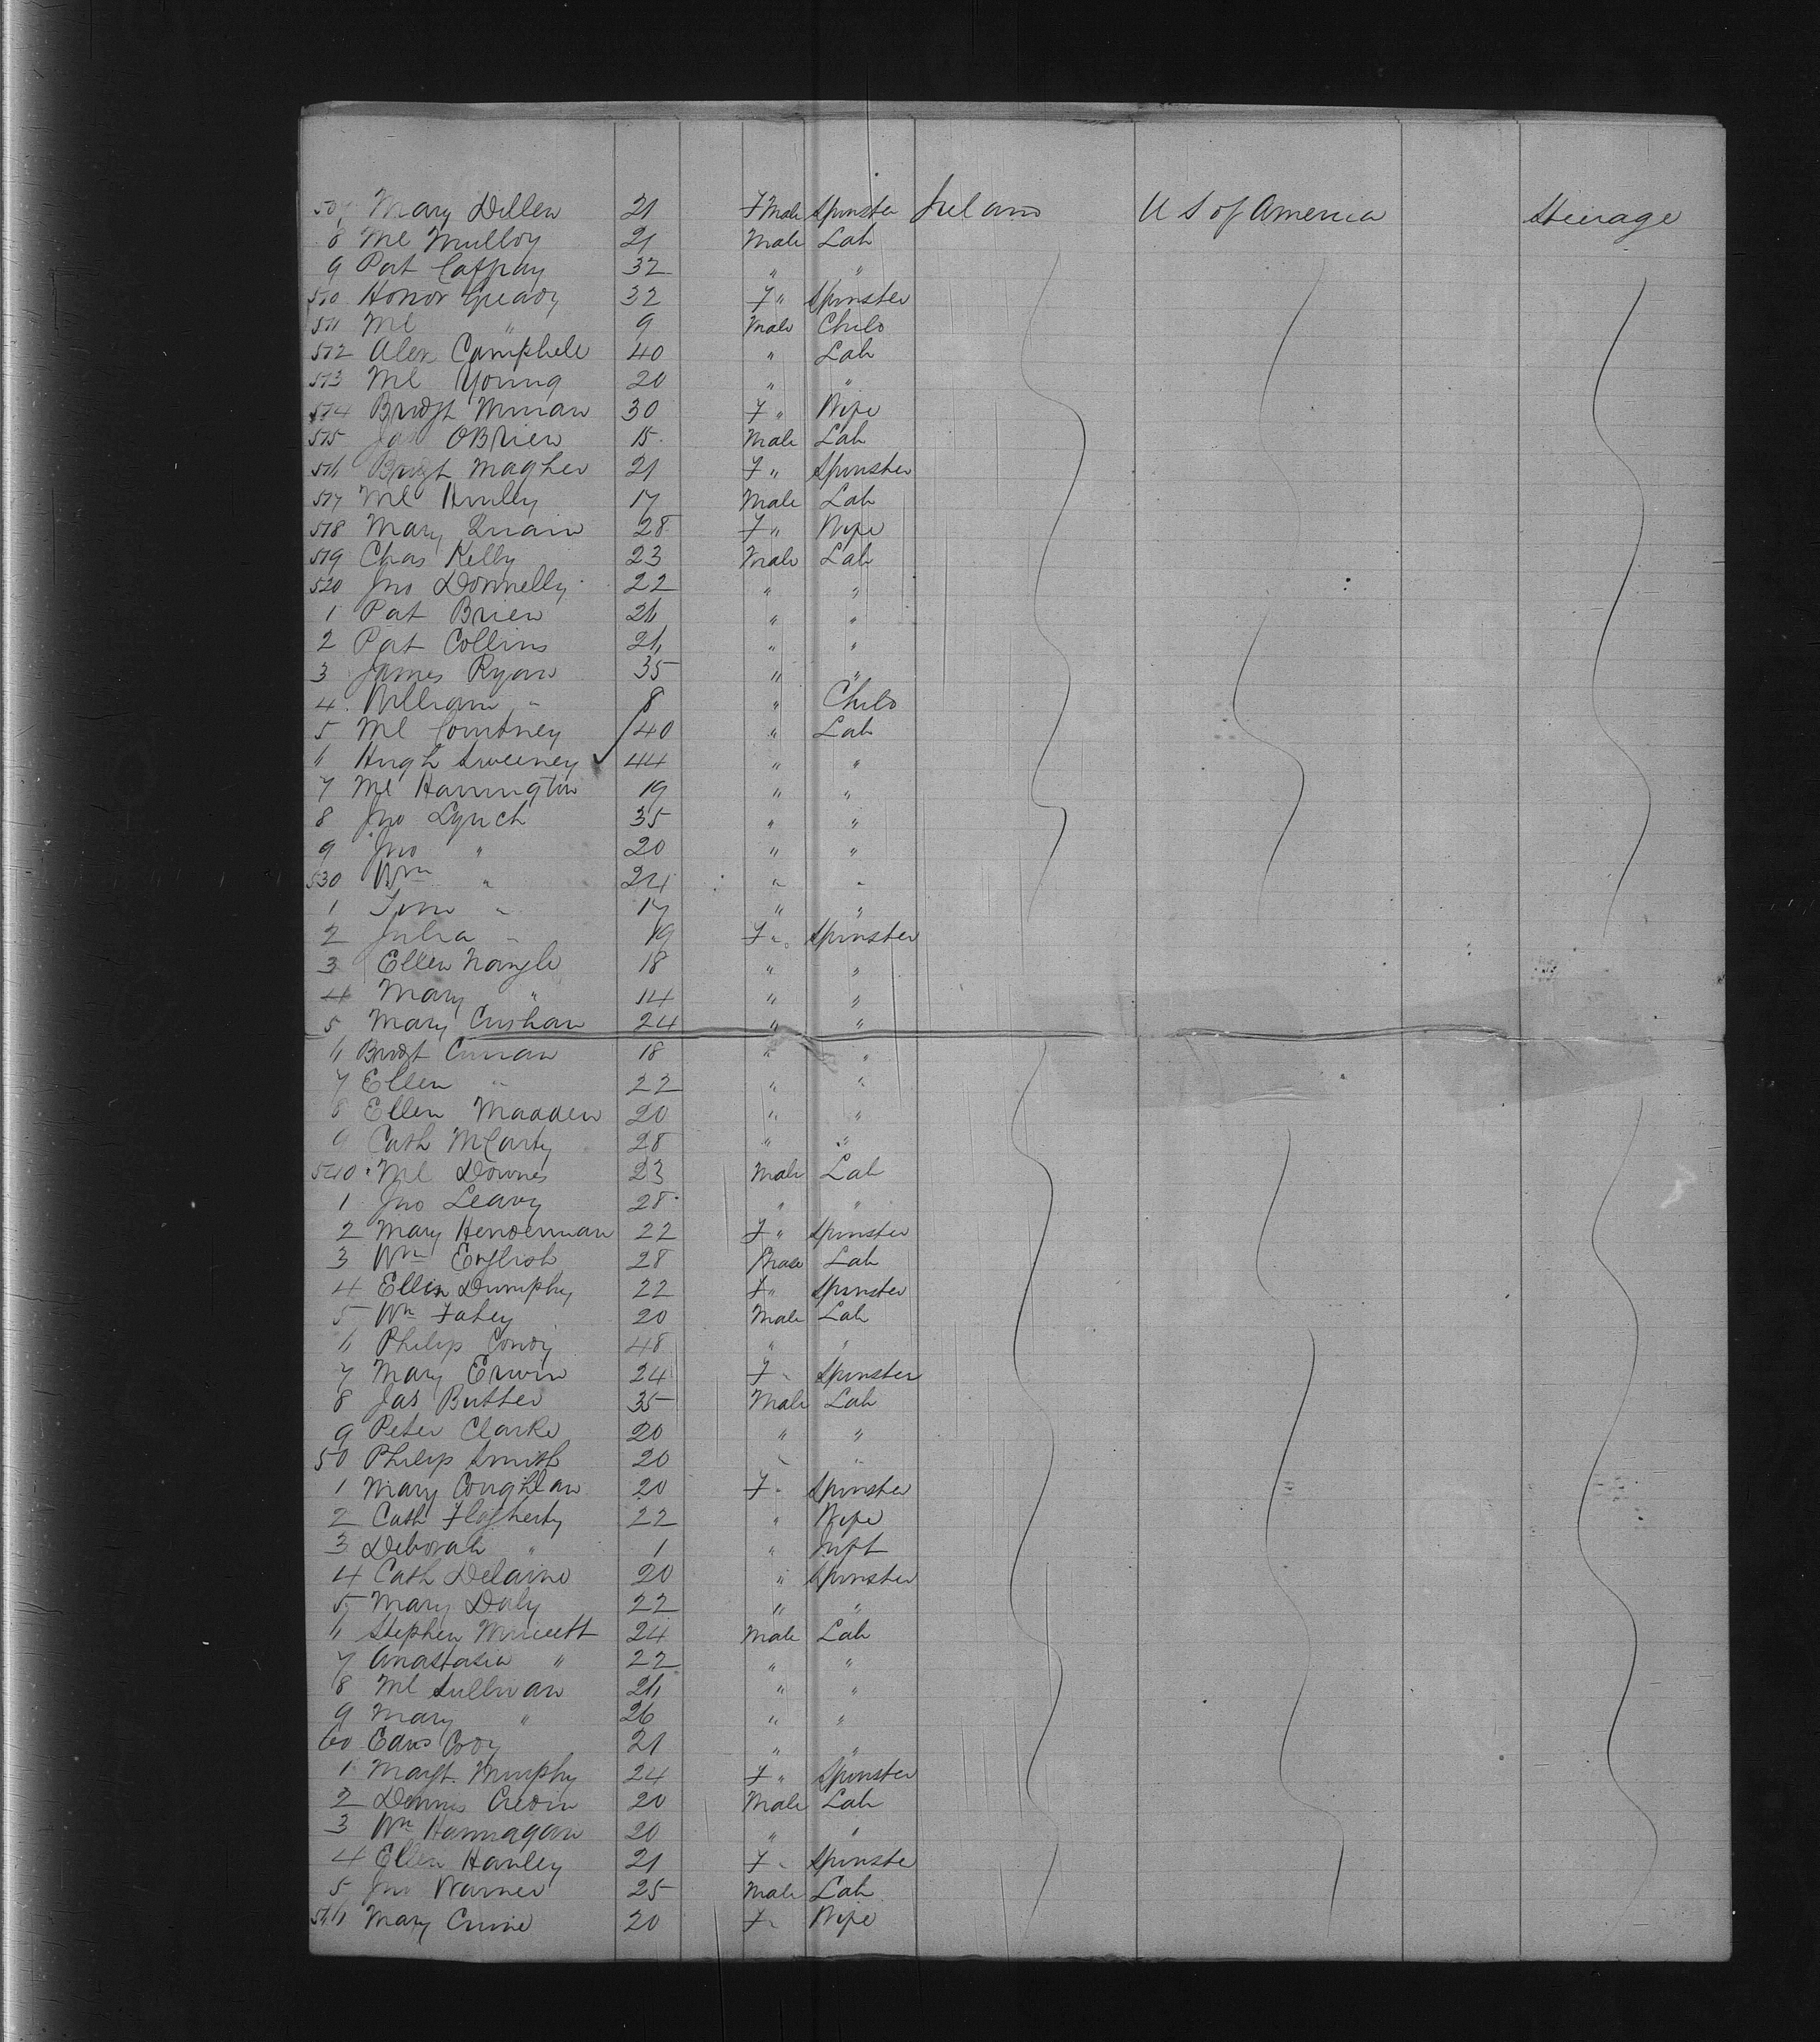 507 Mary Dillen 21 FMale Spinster Ireland U S of America Steerage
8 Ml Mulloy 21 Male Lab
9 Pat Caffray 32 " "
510 Honor Gready 32 F " Spinster
511 Ml " 9 Male Child
512 Alex Campbell 40 " Lab
513 Ml Young 20 " "
514 Bridgt 30 F " Wife
515 Jas OBrien 15 Male Lab
516 Bridgt Magher 21 F " Spinster
517 Ml Hurley 17 Male Lab
518 Mary Quain 28 F " Wife
519 Chas Kelly 23 Male Lab
520 Jno Donnelly 22 " "
1 Pat Brien 26 " "
2 Pat Collins 26 " "
3 James Ryan 35 " "
4 William " 8 " Child
5 Ml Courtney 40 " Lab
6 Hugh Sweeney 44 " "
7 Ml Harrington 19 " "
8 Jno Lynch 35 " "
9 Jno " 20 " "
530 Wm " 24 " "
1 Tim " 17 " "
2 Julia " 19 F " Spinster
3 Ellen Nangle 18 " "
4 Mary " 14 " "
5 Mary Cushan 24 " "
6 Bridgt Curran 18 " "
7 Ellen " 22 " "
8 Ellen Madden 20 " "
9 Cath McCarty 28 " "
540 Ml Downes 23 Male Lab
1 Jno Leavy 28 " "
2 Mary Henderman 22 F " Spinster
3 Wm English 28 Male Lab
4 Ellen Dumphy 22 F " Spinster
5 Wm Fahey 20 Male Lab
6 Philip Conoy 48 " "
7 Mary Erwin 24 F " Spinster
8 Jas Butler 35 Male Lab
9 Peter Clarke 20 " "
50 Philip Smith 20 " "
1 Mary Coughlan 20 F " Spinster
2 Cath Flagherty 22 " Wife
3 Deborah " 1 " Inft
4 Cath Delaine 20 " Spinster
5 Mary Daly 22 " "
6 Stephen 24 Male Lab
7 Anastasia " 22 " "
8 Ml Sullivan 26 " "
9 Mary " 26 " "
60 Edwd 21 " "
1 Margt. Murphy 24 F " Spinster
2 Dennis Credin 20 Male Lab
3 Wm Hannagan 20 " "
4 Ellen Hanley 21 F " Spinste
5 Jno Warner 25 Male Lab
566 Mary 20 F " Wife